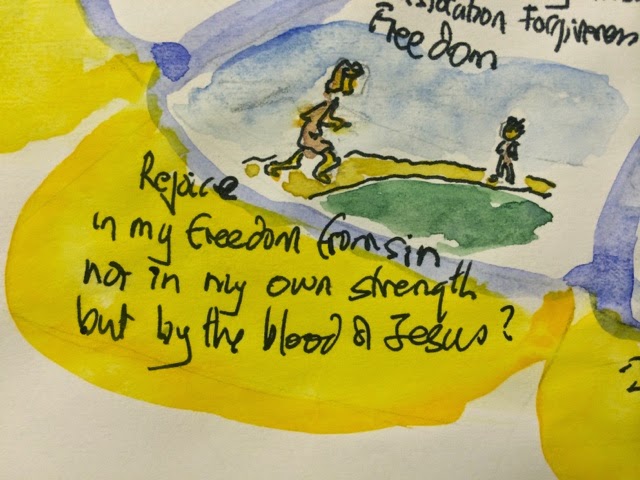 Forgiveness
Freedom
Rejoice
in my Freedom from sin
not in my own strength
but by the blood of Jesus?